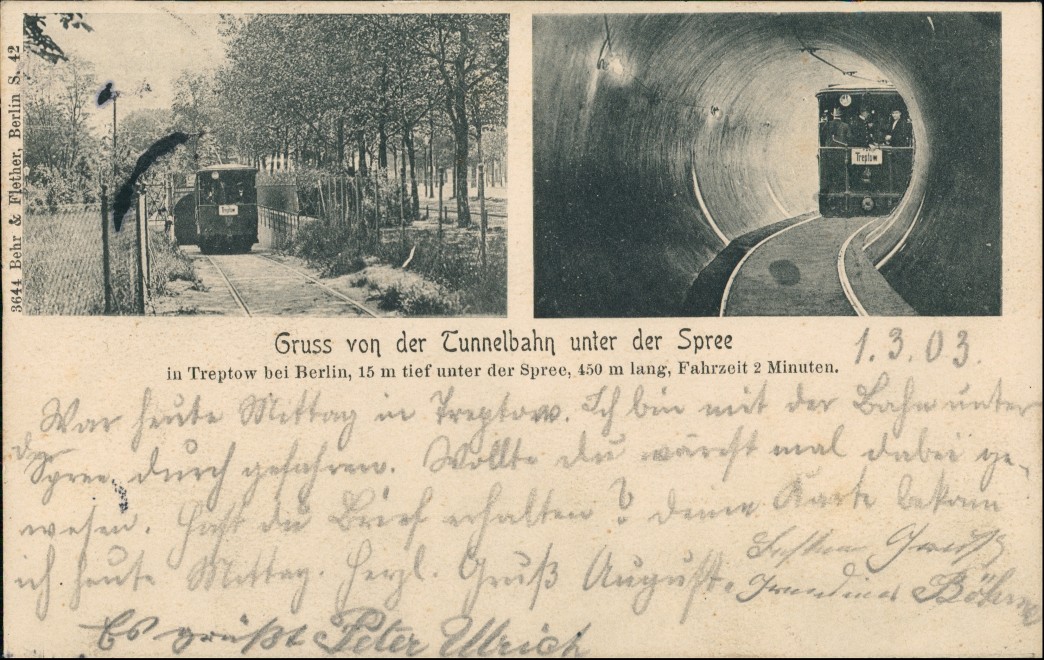 3644 Behr & Flether, Berlin S. 42
Treptow
Treptow
Gruss von der Tunnelbahn unter der Spree
in Treptow bei Berlin, 15 m tief unter der Spree, 450 m lang, Fahrzeit 2 Minuten.
1.3.03.
War heute Mittag in Treptow. Ich bin mit der Bahn unter
der Spree durch gefahren. Wollte du wärest mal dabei ge-
wesen. Hast du Brief erhalten? deine Karte bekam
ich heute Mittag. Herzl. Gruß August.
Gruß
Böhme
Es grüßt Peter Ulrich